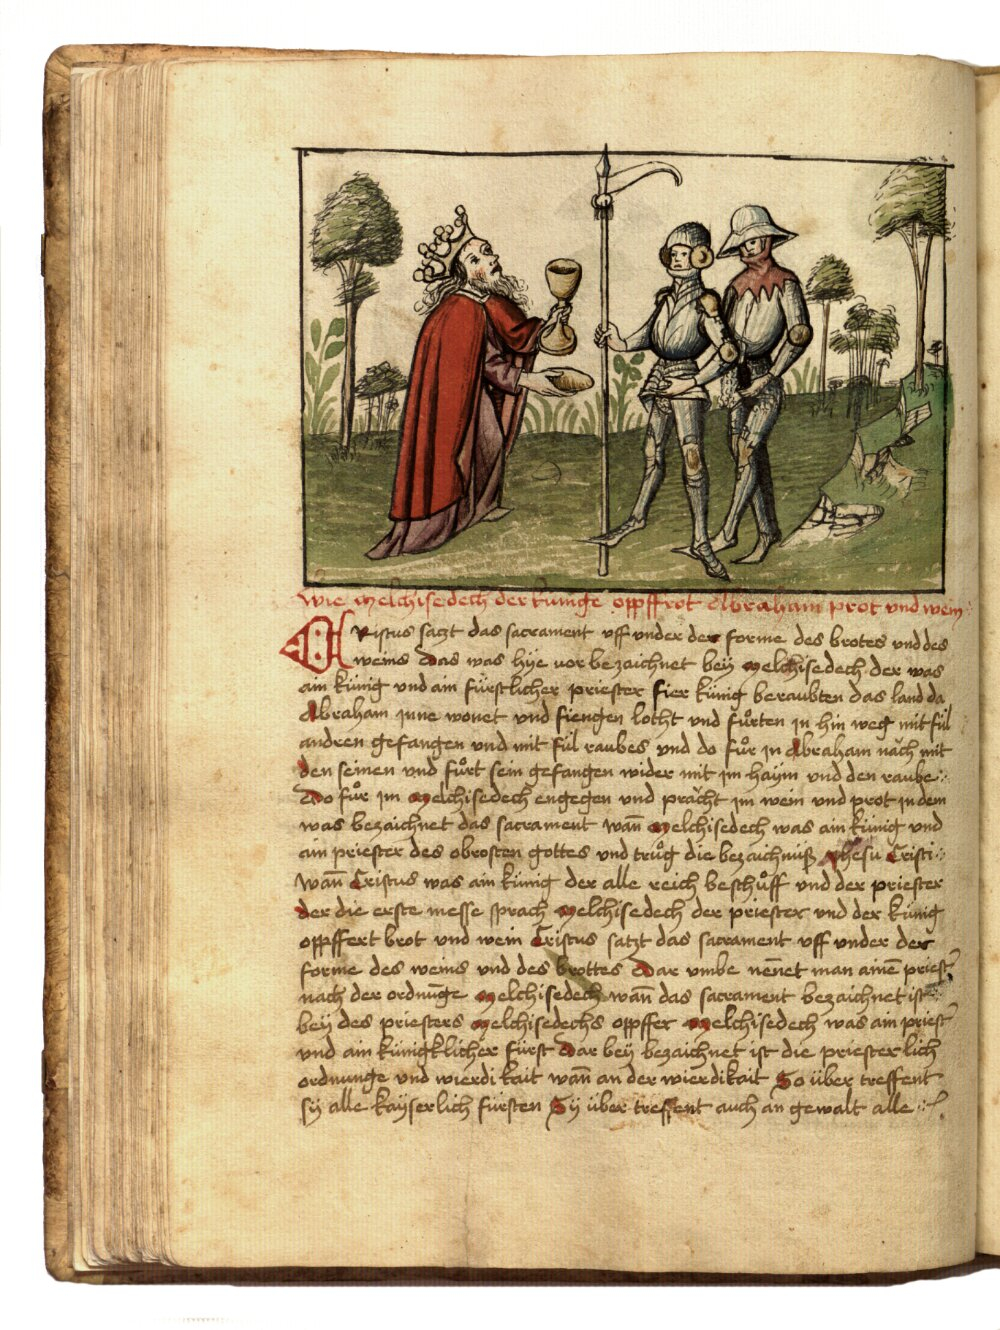 wie melchisedech der kunige oppffrot Abraham prot und wein
Cristus saczt das sacrament uff under der forme des brotes und des
weins Das was hye vor bezaichnet bey melchisedech der was
ain künig und ain fürstlicher priester fier künig beraubten das land da
Abraham inne wonet und fiengen locht und fůrten in hin weg mit fil
andren gefangen und mit fil raubes und do fůr in Abraham nach mit
den seinen und fůrt sein gefangen wider mit im haym und den raube
Do fůr im melchisedech engegen und prächt im wein und prot in dem
was bezaichnet das sacrament wañ melchisedech was ain künig und
ain priester des obrosten gottes und trůg die bezaichnuß Jhesu Cristi
wañ Cristus was ain künig der alle reich beschůff und der priester
der die erste messe sprach melchisedech der priester und der künig
oppffert brot und wein Cristus satzt das sacrament uff under der
forme des weins und des brottes Dar umbe nēnet man ainen priest
nach der ordnūge melchisedech wañ das sacrament bezaichnet ist
bey des priesters melchisedechs oppffer melchisedech was ain priest
und ain künigklicher fürst Dar bey bezaichnet ist die priesterlich
ordnunge und wierdikait wañ an der wierdikait So über treffent
sy alle kayserlich fürsten Sy über treffent auch an gewalt alle